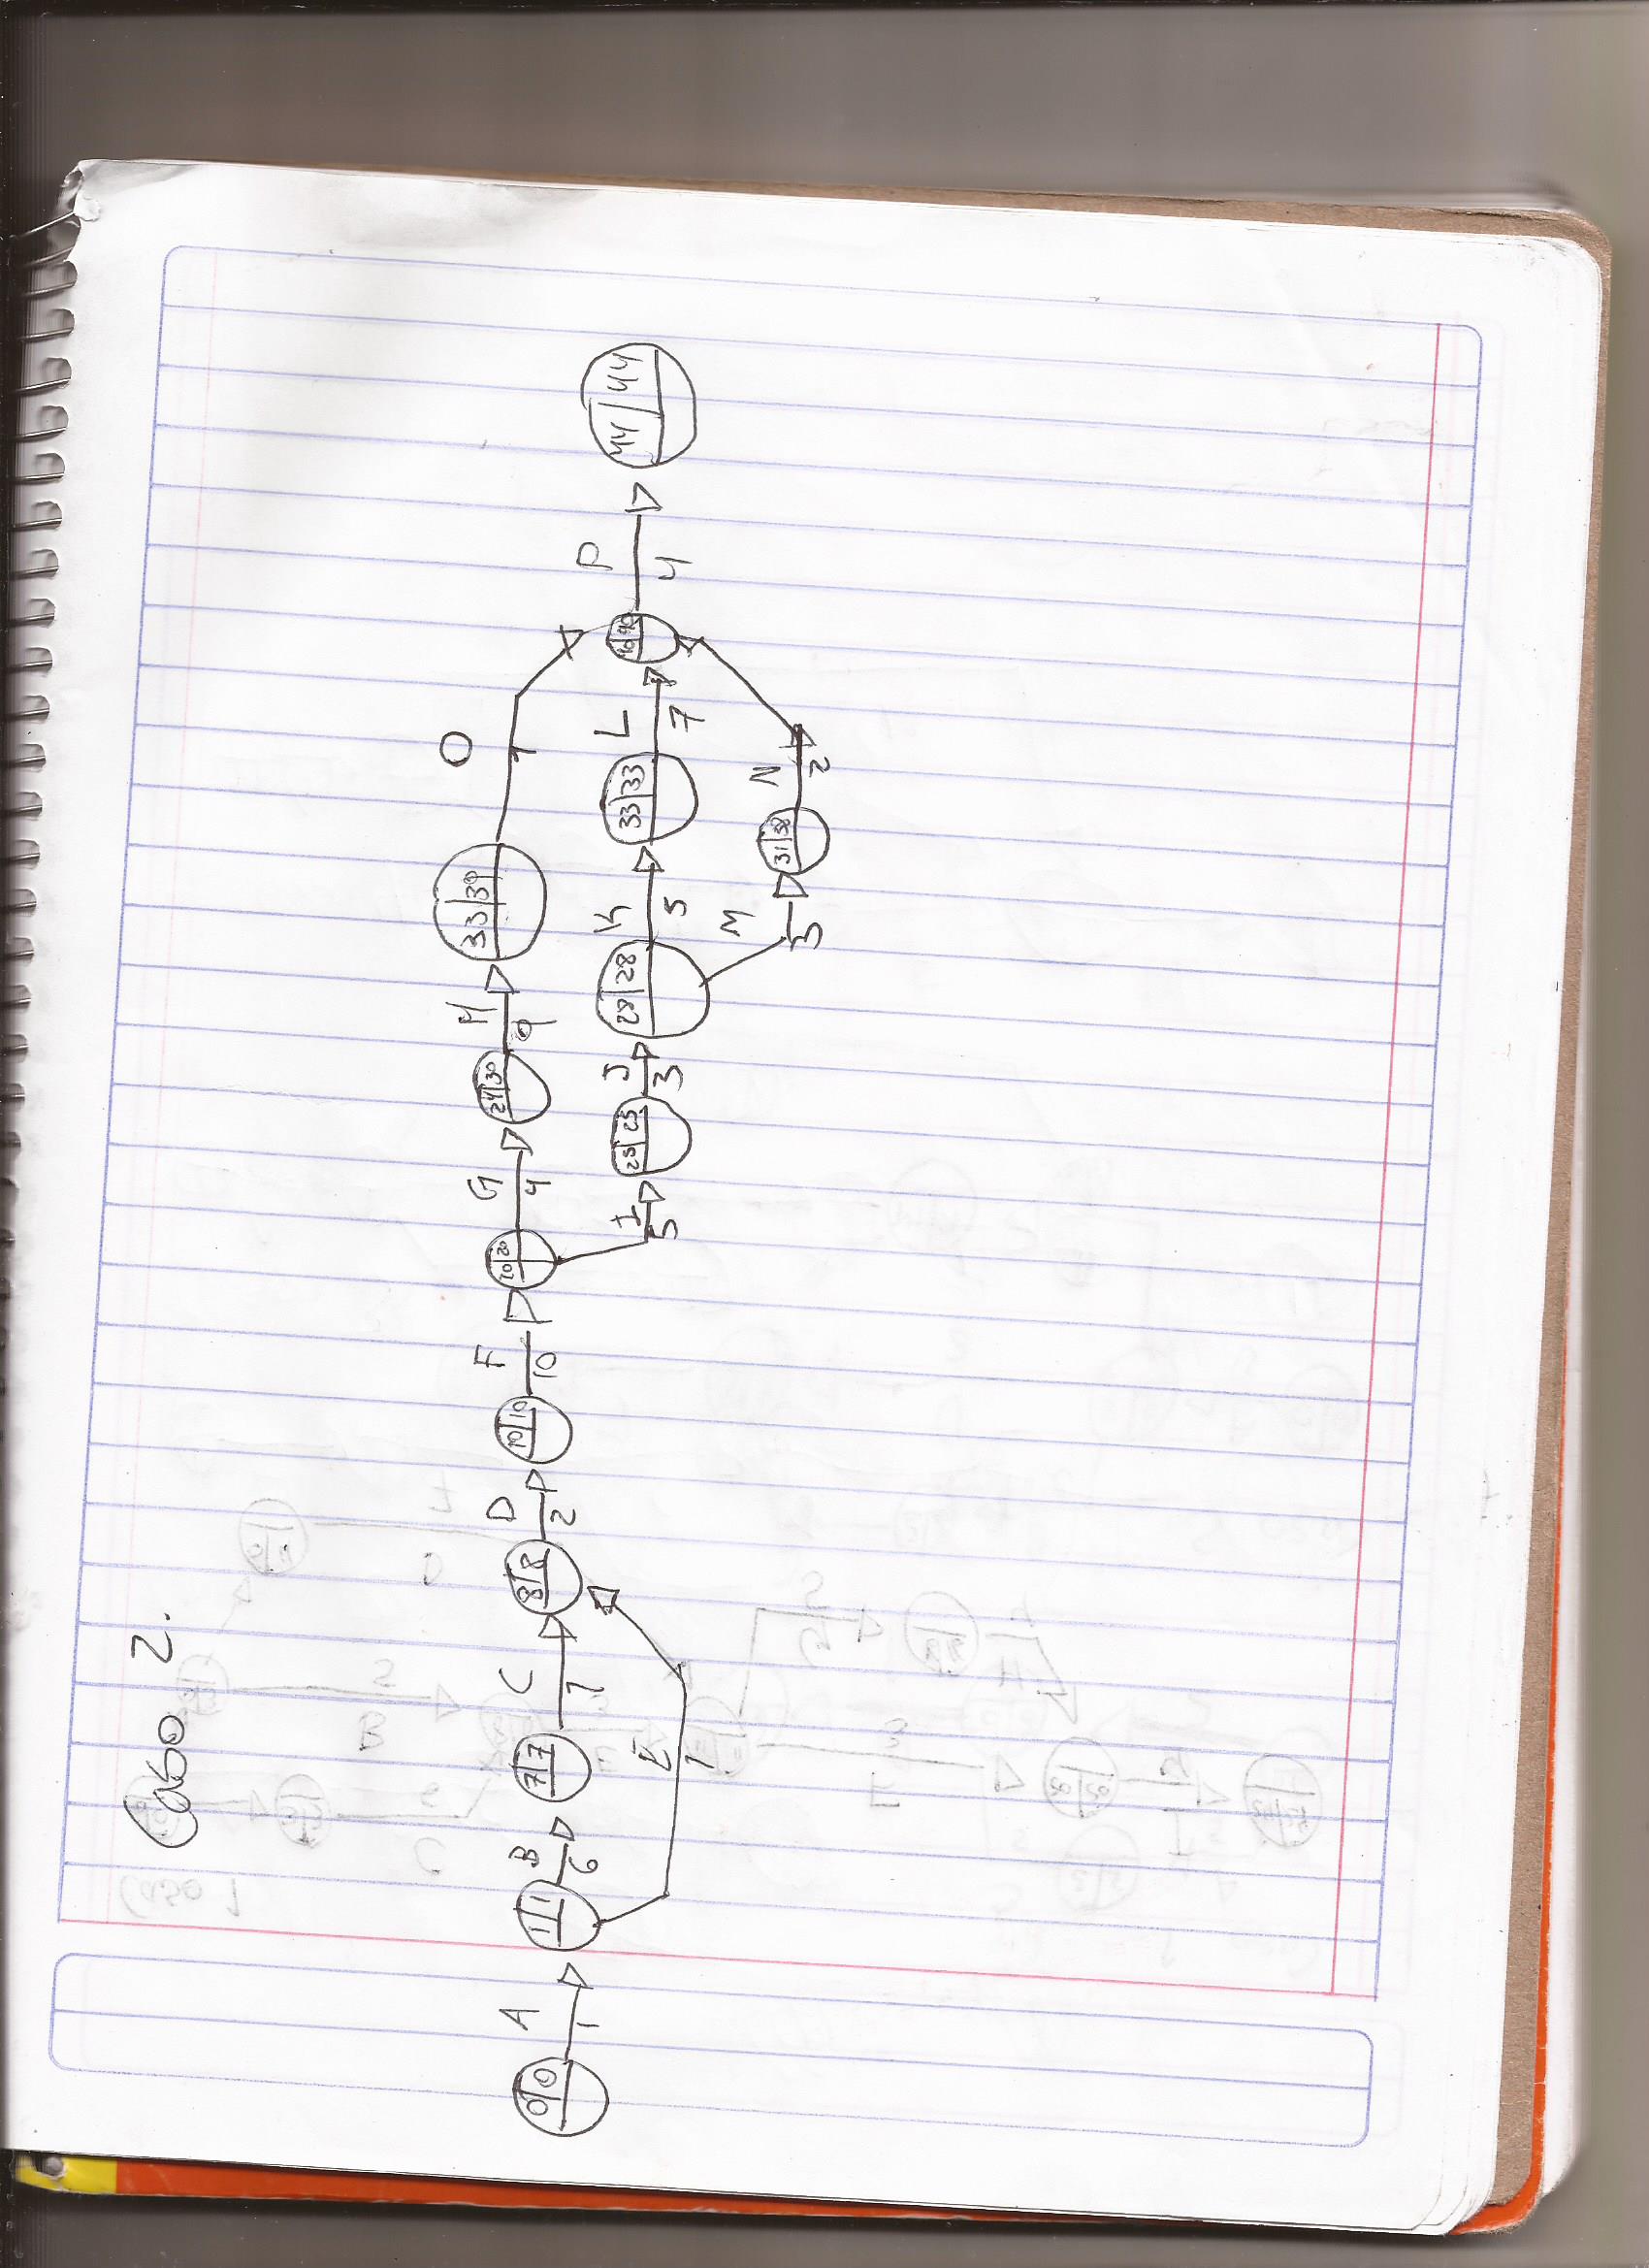 Caso 2.
0 0
A
1
1 1
B
6
7 7
C
1
E
1
8 8
D
2
10 10
F
10
20 20
G
4
24 30
H
9
33 39
O
1
I
5
25 25
J
3
28 28
K
5
33 33
L
7
M
3
31 38
N
2
40 40
P
4
44 44